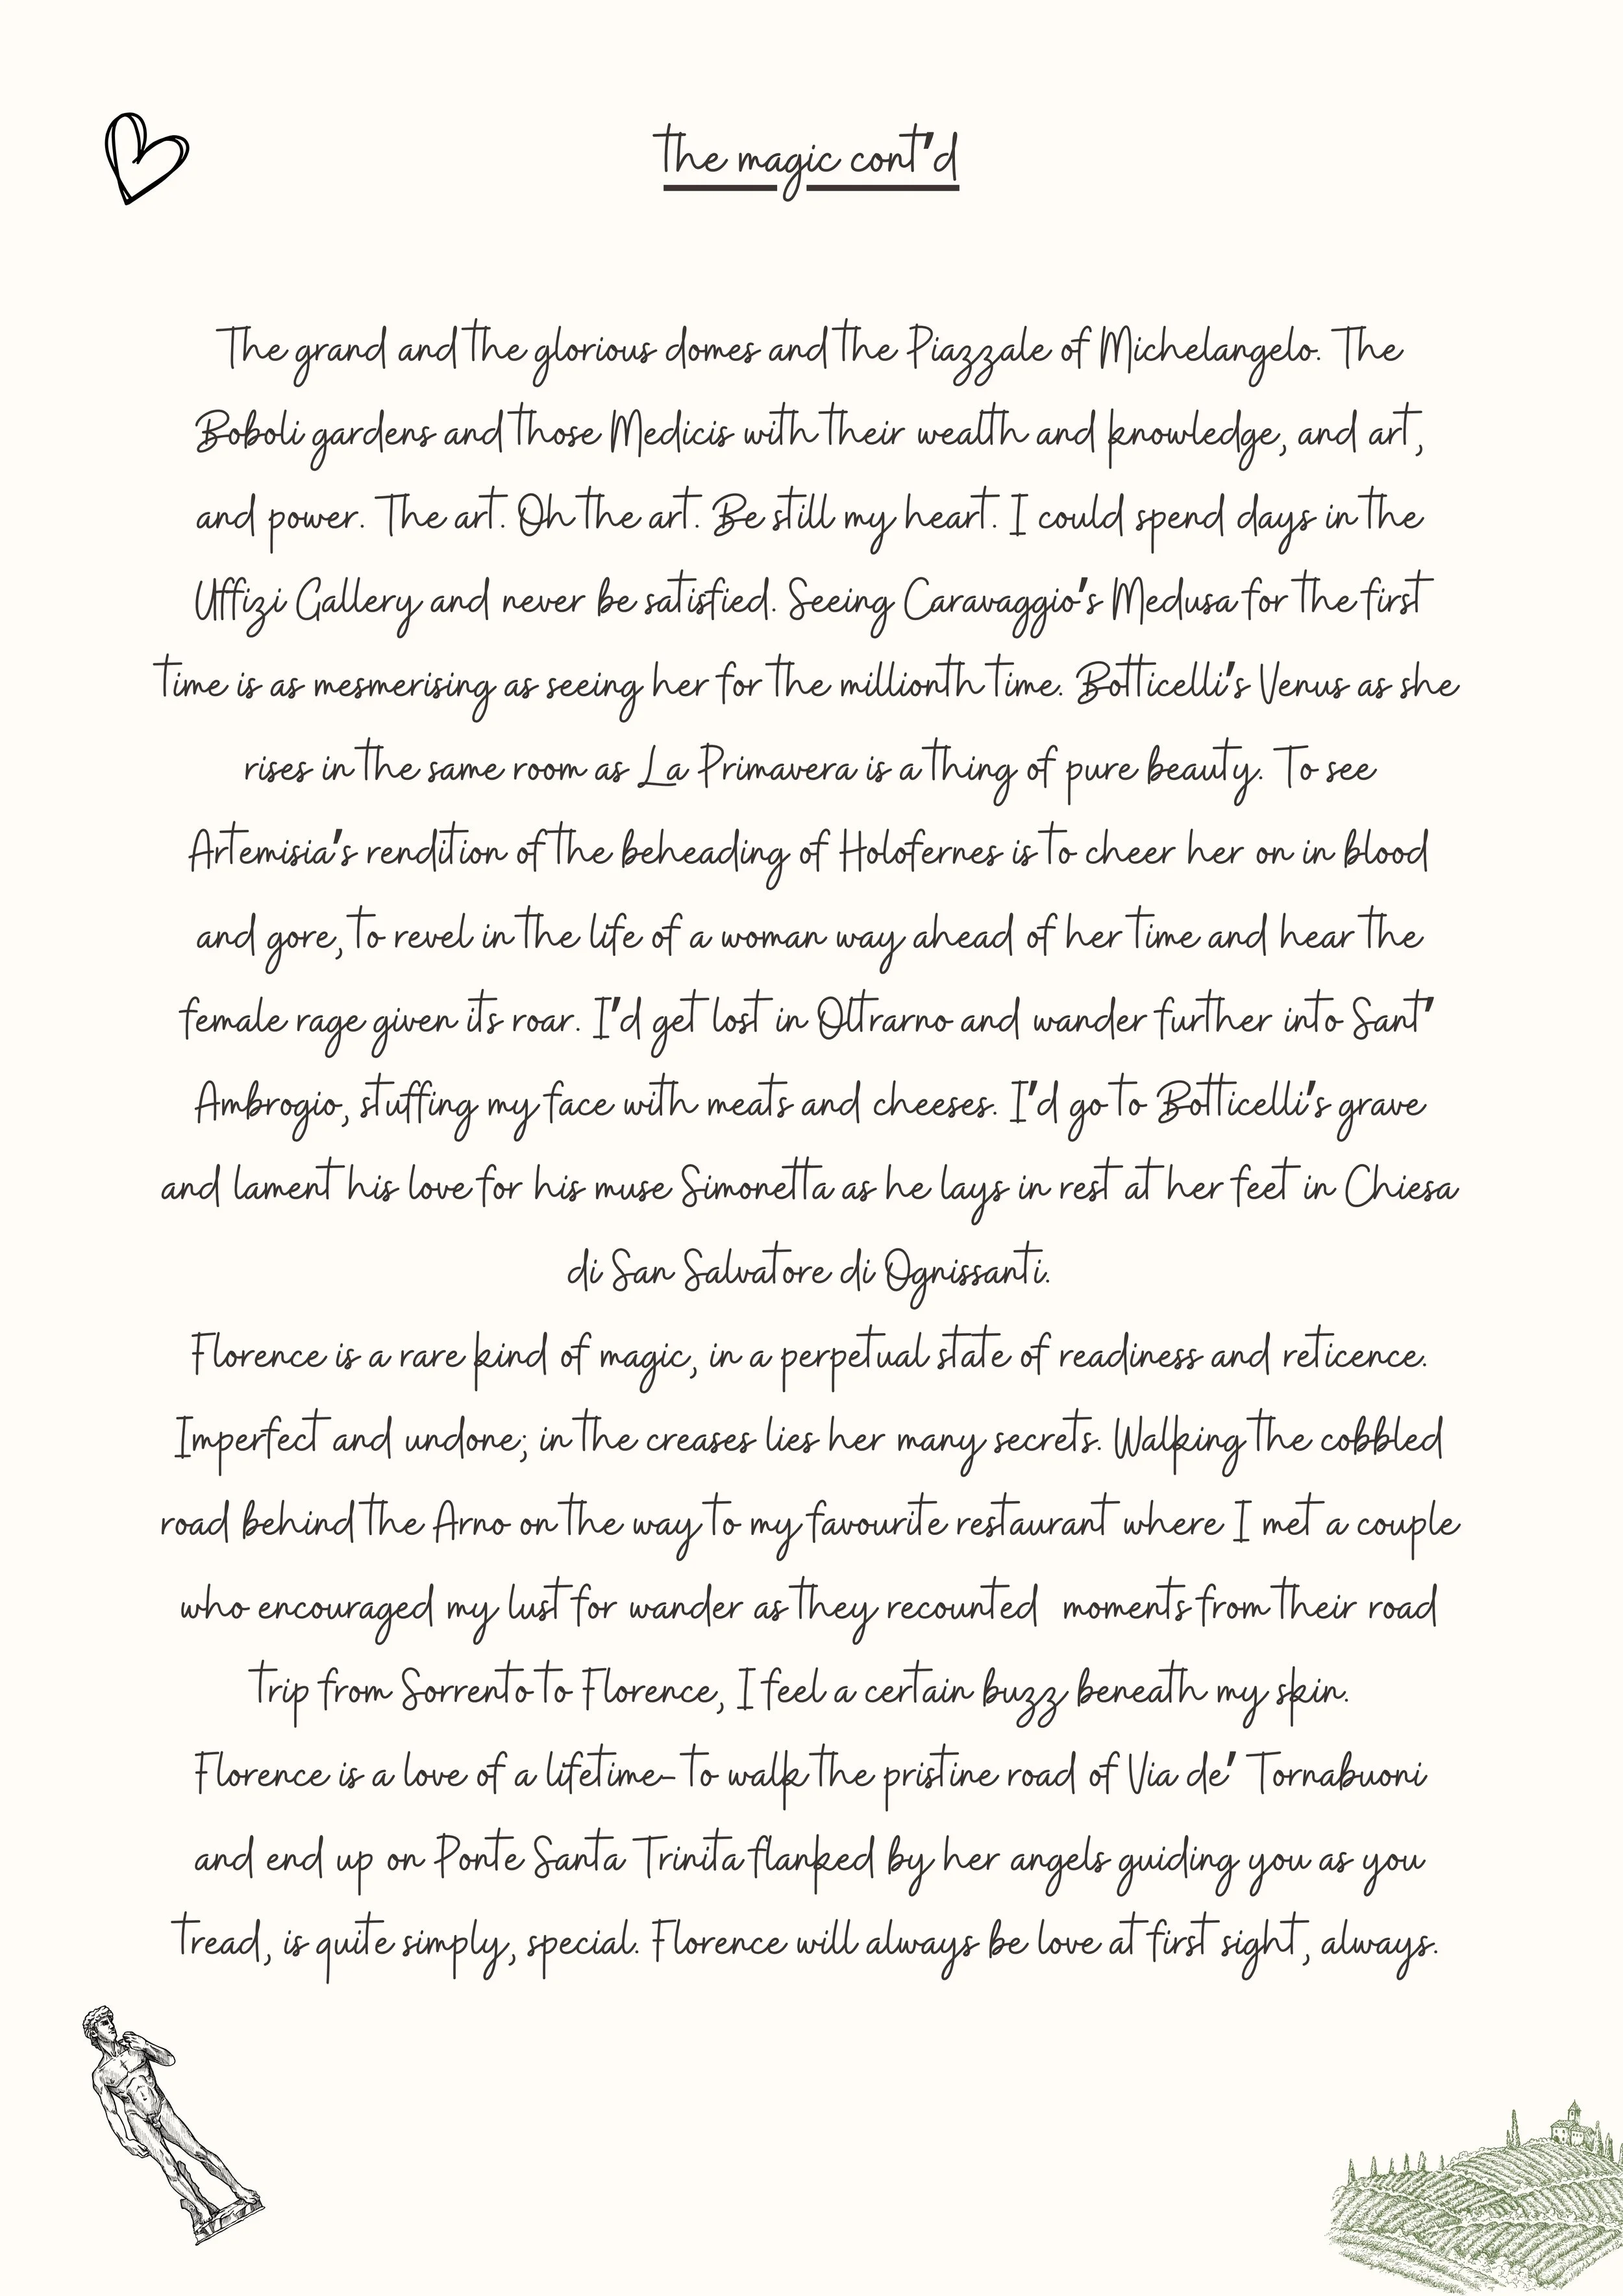 the magic cont'd
The grand and the glorious domes and the Piazzale of Michelangelo. The
Boboli gardens and those Medicis with their wealth and knowledge, and art,
and power. The art. Oh the art. Be still my heart. I could spend days in the
Uffizi Gallery and never be satisfied. Seeing Caravaggio's Medusa for the first
time is as mesmerising as seeing her for the millionth time. Botticelli's Venus as she
rises in the same room as La Primavera is a thing of pure beauty. To see
Artemisia's rendition of the beheading of Holofernes is to cheer her on in blood
and gore, to revel in the life of a woman way ahead of her time and hear the
female rage given its roar. I'd get lost in Oltrarno and wander further into Sant'
Ambrogio, stuffing my face with meats and cheeses. I'd go to Botticelli's grave
and lament his love for his muse Simonetta as he lays in rest at her feet in Chiesa
di San Salvatore di Ognissanti.
Florence is a rare kind of magic, in a perpetual state of readiness and reticence.
Imperfect and undone; in the creases lies her many secrets. Walking the cobbled
road behind the Arno on the way to my favourite restaurant where I met a couple
who encouraged my lust for wander as they recounted moments from their road
trip from Sorrento to Florence, I feel a certain buzz beneath my skin.
Florence is a love of a lifetime- to walk the pristine road of Via de' Tornabuoni
and end up on Ponte Santa Trinita flanked by her angels guiding you as you
tread, is quite simply, special. Florence will always be love at first sight, always.